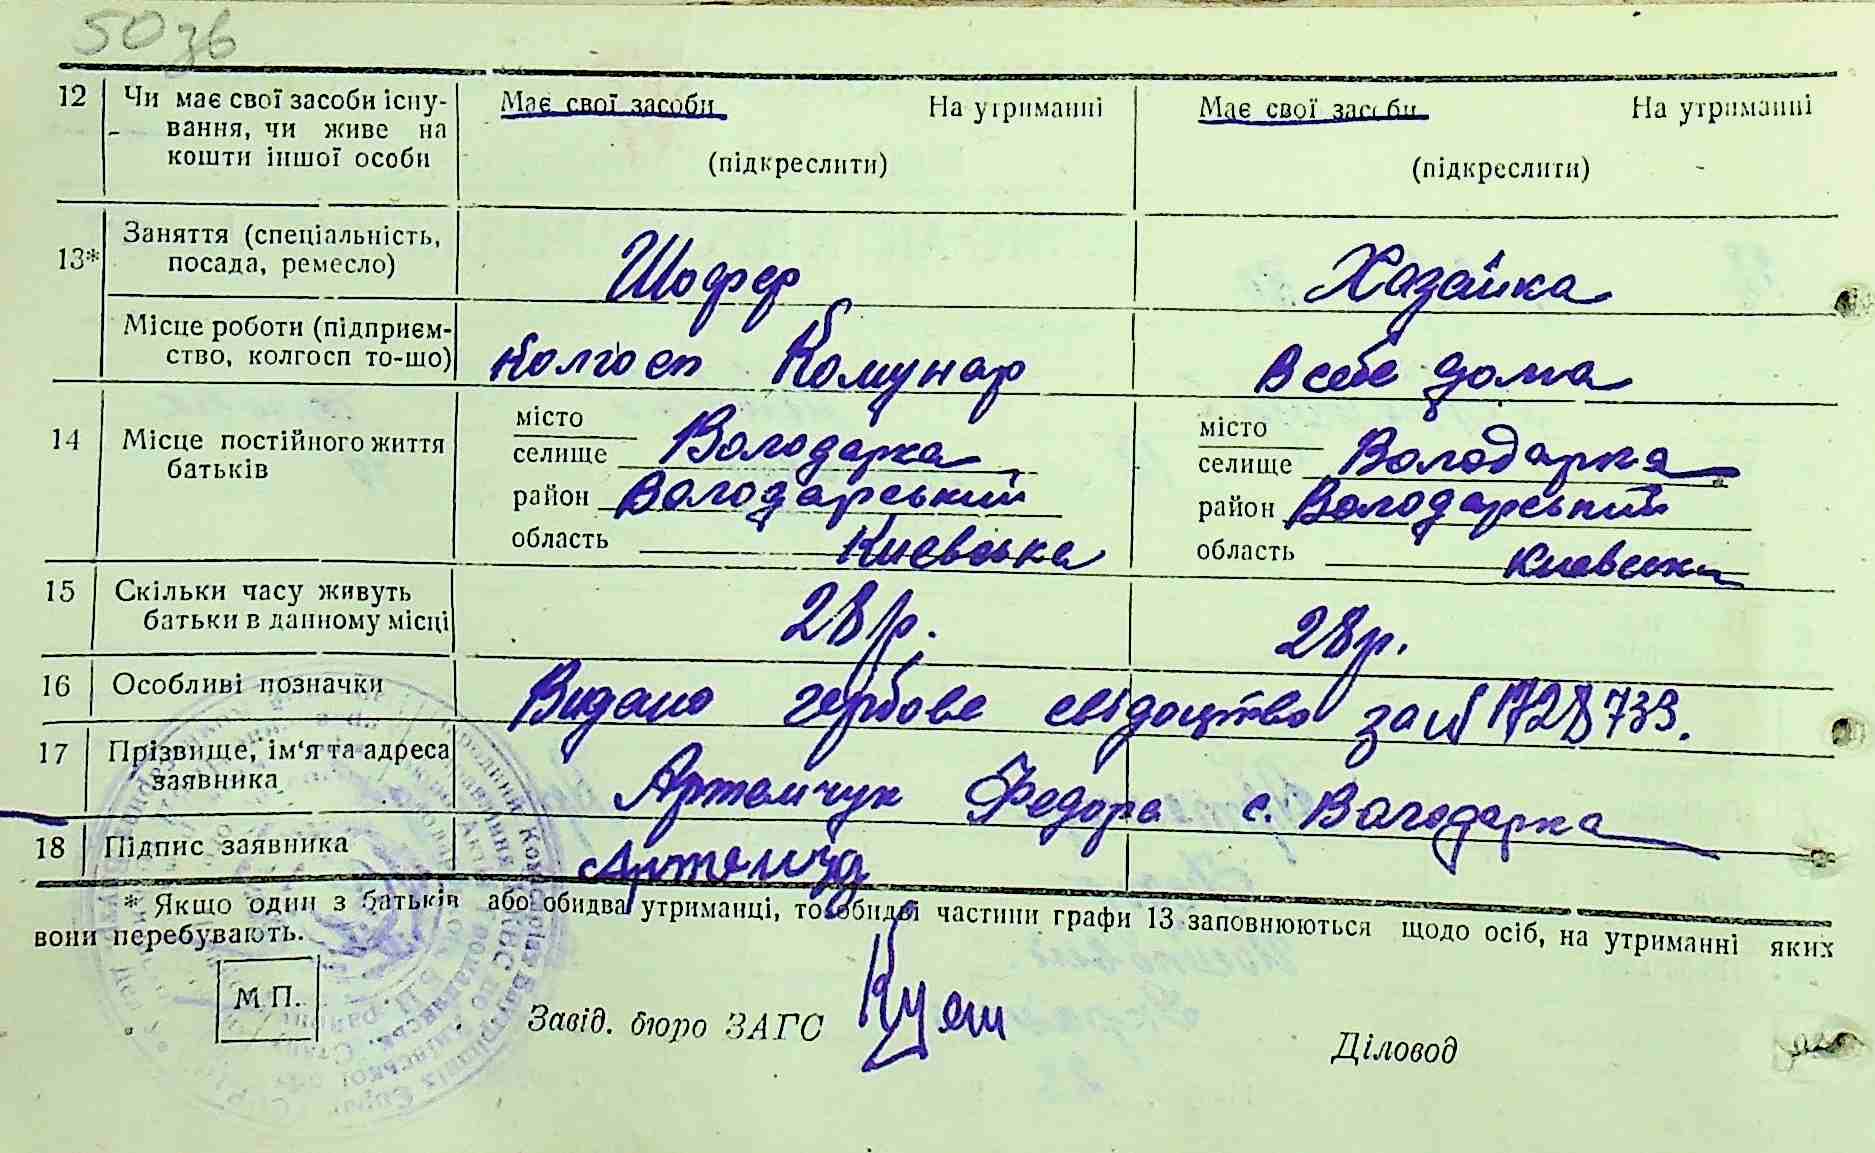 50зв
12 Чи має свої засоби існу- Має свої засоби На утриманні Має свої засоби На утриманні
вання, чи живе на
кошти іншої особи (підкреслити) (підкреслити)
13* Заняття (спеціальність,
посада, ремесло) Шофер Хазайка
Місце роботи (підприєм-
ство, колгосп то-що) Колгосп Комунар В себе дома
14 Місце постійного життя місто місто
батьків селище Володарка селище Володарка
район Володарський район Володарський
область Киевська область Киевська
15 Скільки часу живуть
батьки в данному місці 28 р. 28 р.
16 Особливі позначки Видано гербове свідоцтво за № 1728739.
17 Прізвище, ім'я та адреса
заявника Артемчук Федора с. Володарка
18 Підпис заявника
* Якщо один з батьків або обидва утриманці, то обидві частини графи 13 заповнюються щодо осіб, на утриманні яких
вони перебувають.
М.П.
Завід. бюро ЗАГС
Діловод